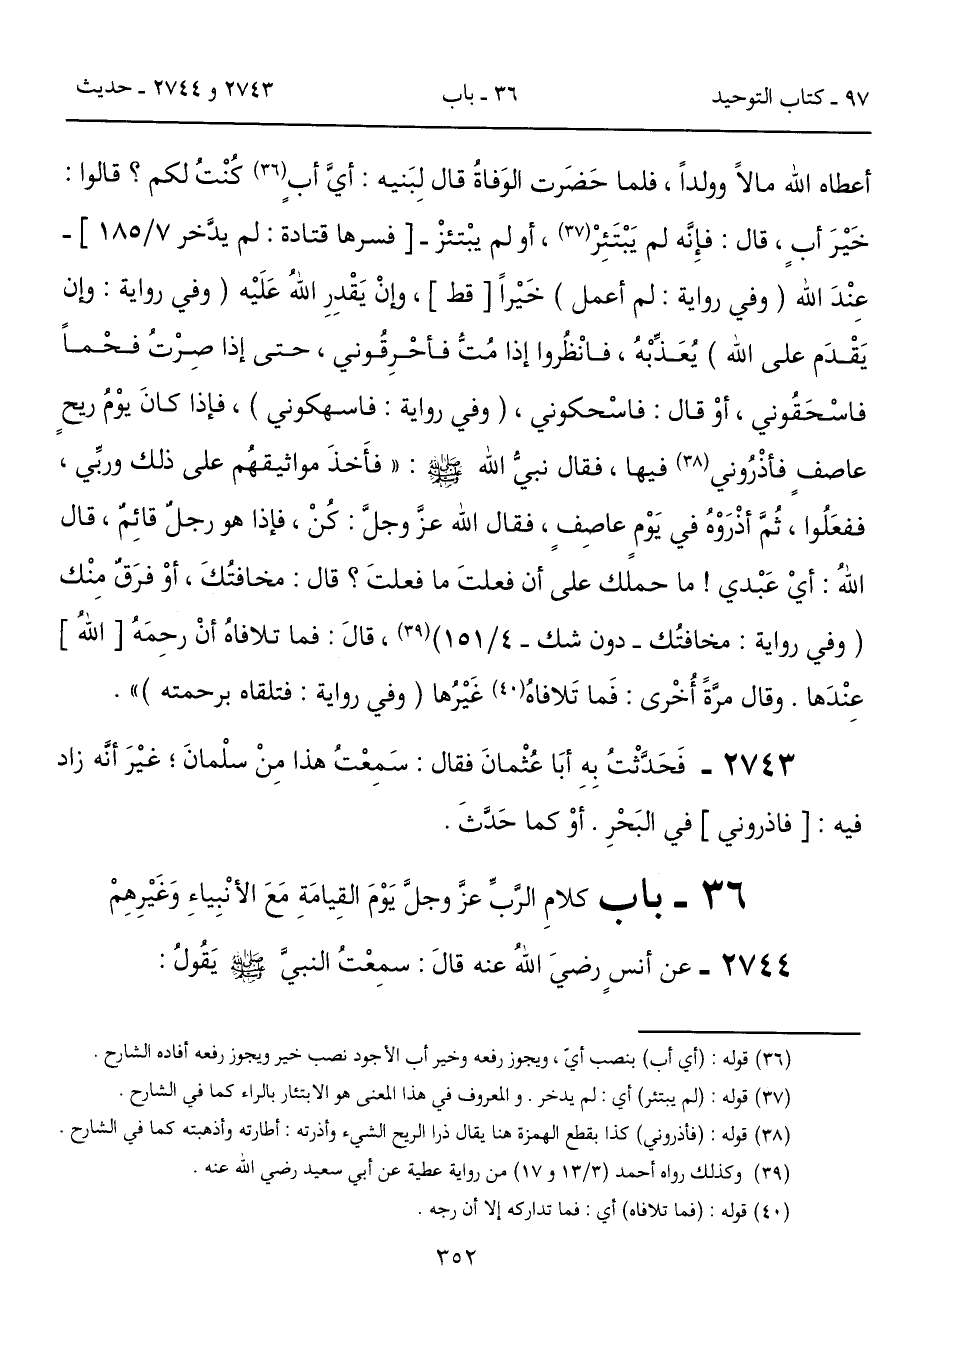 ٩٧ ـ كتاب التوحيد ٣٦ ـ باب ٢٧٤٣ و ٢٧٤٤ ـ حديث
أعطاه الله مالاً وولداً ، فلما حَضَرَت الوَفاةُ قال لبَنيه : أيَّ أبٍ(٣٦) كُنْتُ لكم ؟ قالوا :
خَيْرَ أبٍ ، قال : فإنَّه لم يَبْتَئِرْ(٣٧) ، أو لم يبْتئزْ ـ [ فسرها قتادة : لم يدَّخر ١٨٥/٧ ] ـ
عِنْدَ الله ( وفي رواية : لم أعمل ) خَيْراً [ قط ] ، وإنْ يَقْدرِ اللهُ عَلَيْه ( وفي رواية : وإن
يَقْدَم على الله ) يُعَذِّبْهُ ، فانْظُروا إذا مُتُّ فأحْرِقُوني ، حتى إذا صِرْتُ فحْماً
فاسْحَقُوني ، أوْ قال : فاسْحكوني ، ( وفي رواية : فاسهكوني ) ، فإذا كانَ يوْمُ ريحٍ
عاصفٍ فأذْرُوني(٣٨) فيها ، فقال نبيُّ الله ﷺ : « فأَخذَ مواثيقهُم على ذلك وربِّي ،
ففعَلُوا ، ثُمَّ أذْرَوْهُ في يَوْمٍ عاصِفٍ ، فقال الله عزَّ وجلَّ : كُنْ ، فإذا هو رجلٌ قائمٌ ، قال
اللهُ : أيْ عَبْدي ! ما حملك على أن فعلتَ ما فعلتَ ؟ قال : مخافتُكَ ، أوْ فرَقٌ منْك
( وفي رواية : مخافتُك ـ دون شك ـ ١٥١/٤)(٣٩) ، قالَ : فما تلافاهُ أنْ رحِمَهُ [ اللهُ ]
عِنْدَها . وقال مرَّةً أُخْرى : فَما تَلافاهُ(٤٠) غَيْرُها ( وفي رواية : فتلقاه برحمته )» .
٢٧٤٣ ـ فَحَدَّثْتُ بِهِ أبَا عُثْمانَ فقال : سَمِعْتُ هذا مِنْ سلْمانَ ؛ غيْرَ أنَّه زاد
فيه : [ فاذروني ] في البَحْرِ . أوْ كما حَدَّثَ .
٣٦ ـ باب كلامِ الرَّبِّ عزَّ وجلَّ يَوْمَ القِيامَةِ مَعَ الأنْبِياءِ وَغَيْرِهِمْ
٢٧٤٤ ـ عن أنسٍ رضيَ اللهُ عنه قالَ : سمِعْتُ النبيَّ ﷺ يَقُولُ :
(٣٦) قوله : (أي أب) بنصب أيّ ، ويجوز رفعه وخير أب الأجود نصب خير ويجوز رفعه أفاده الشارح .
(٣٧) قوله : (لم يبتئر) أي : لم يدخر . و المعروف في هذا المعنى هو الابتئار بالراء كما في الشارح .
(٣٨) قوله : (فأذروني) كذا بقطع الهمزة هنا يقال ذرا الريح الشيء وأذرته : أطارته وأذهبته كما في الشارح .
(٣٩) وكذلك رواه أحمد (١٣/٣ و ١٧) من رواية عطية عن أبي سعيد رضي الله عنه .
(٤٠) قوله : (فما تلافاه) أي : فما تداركه إلا أن رجه .
٣٥٢